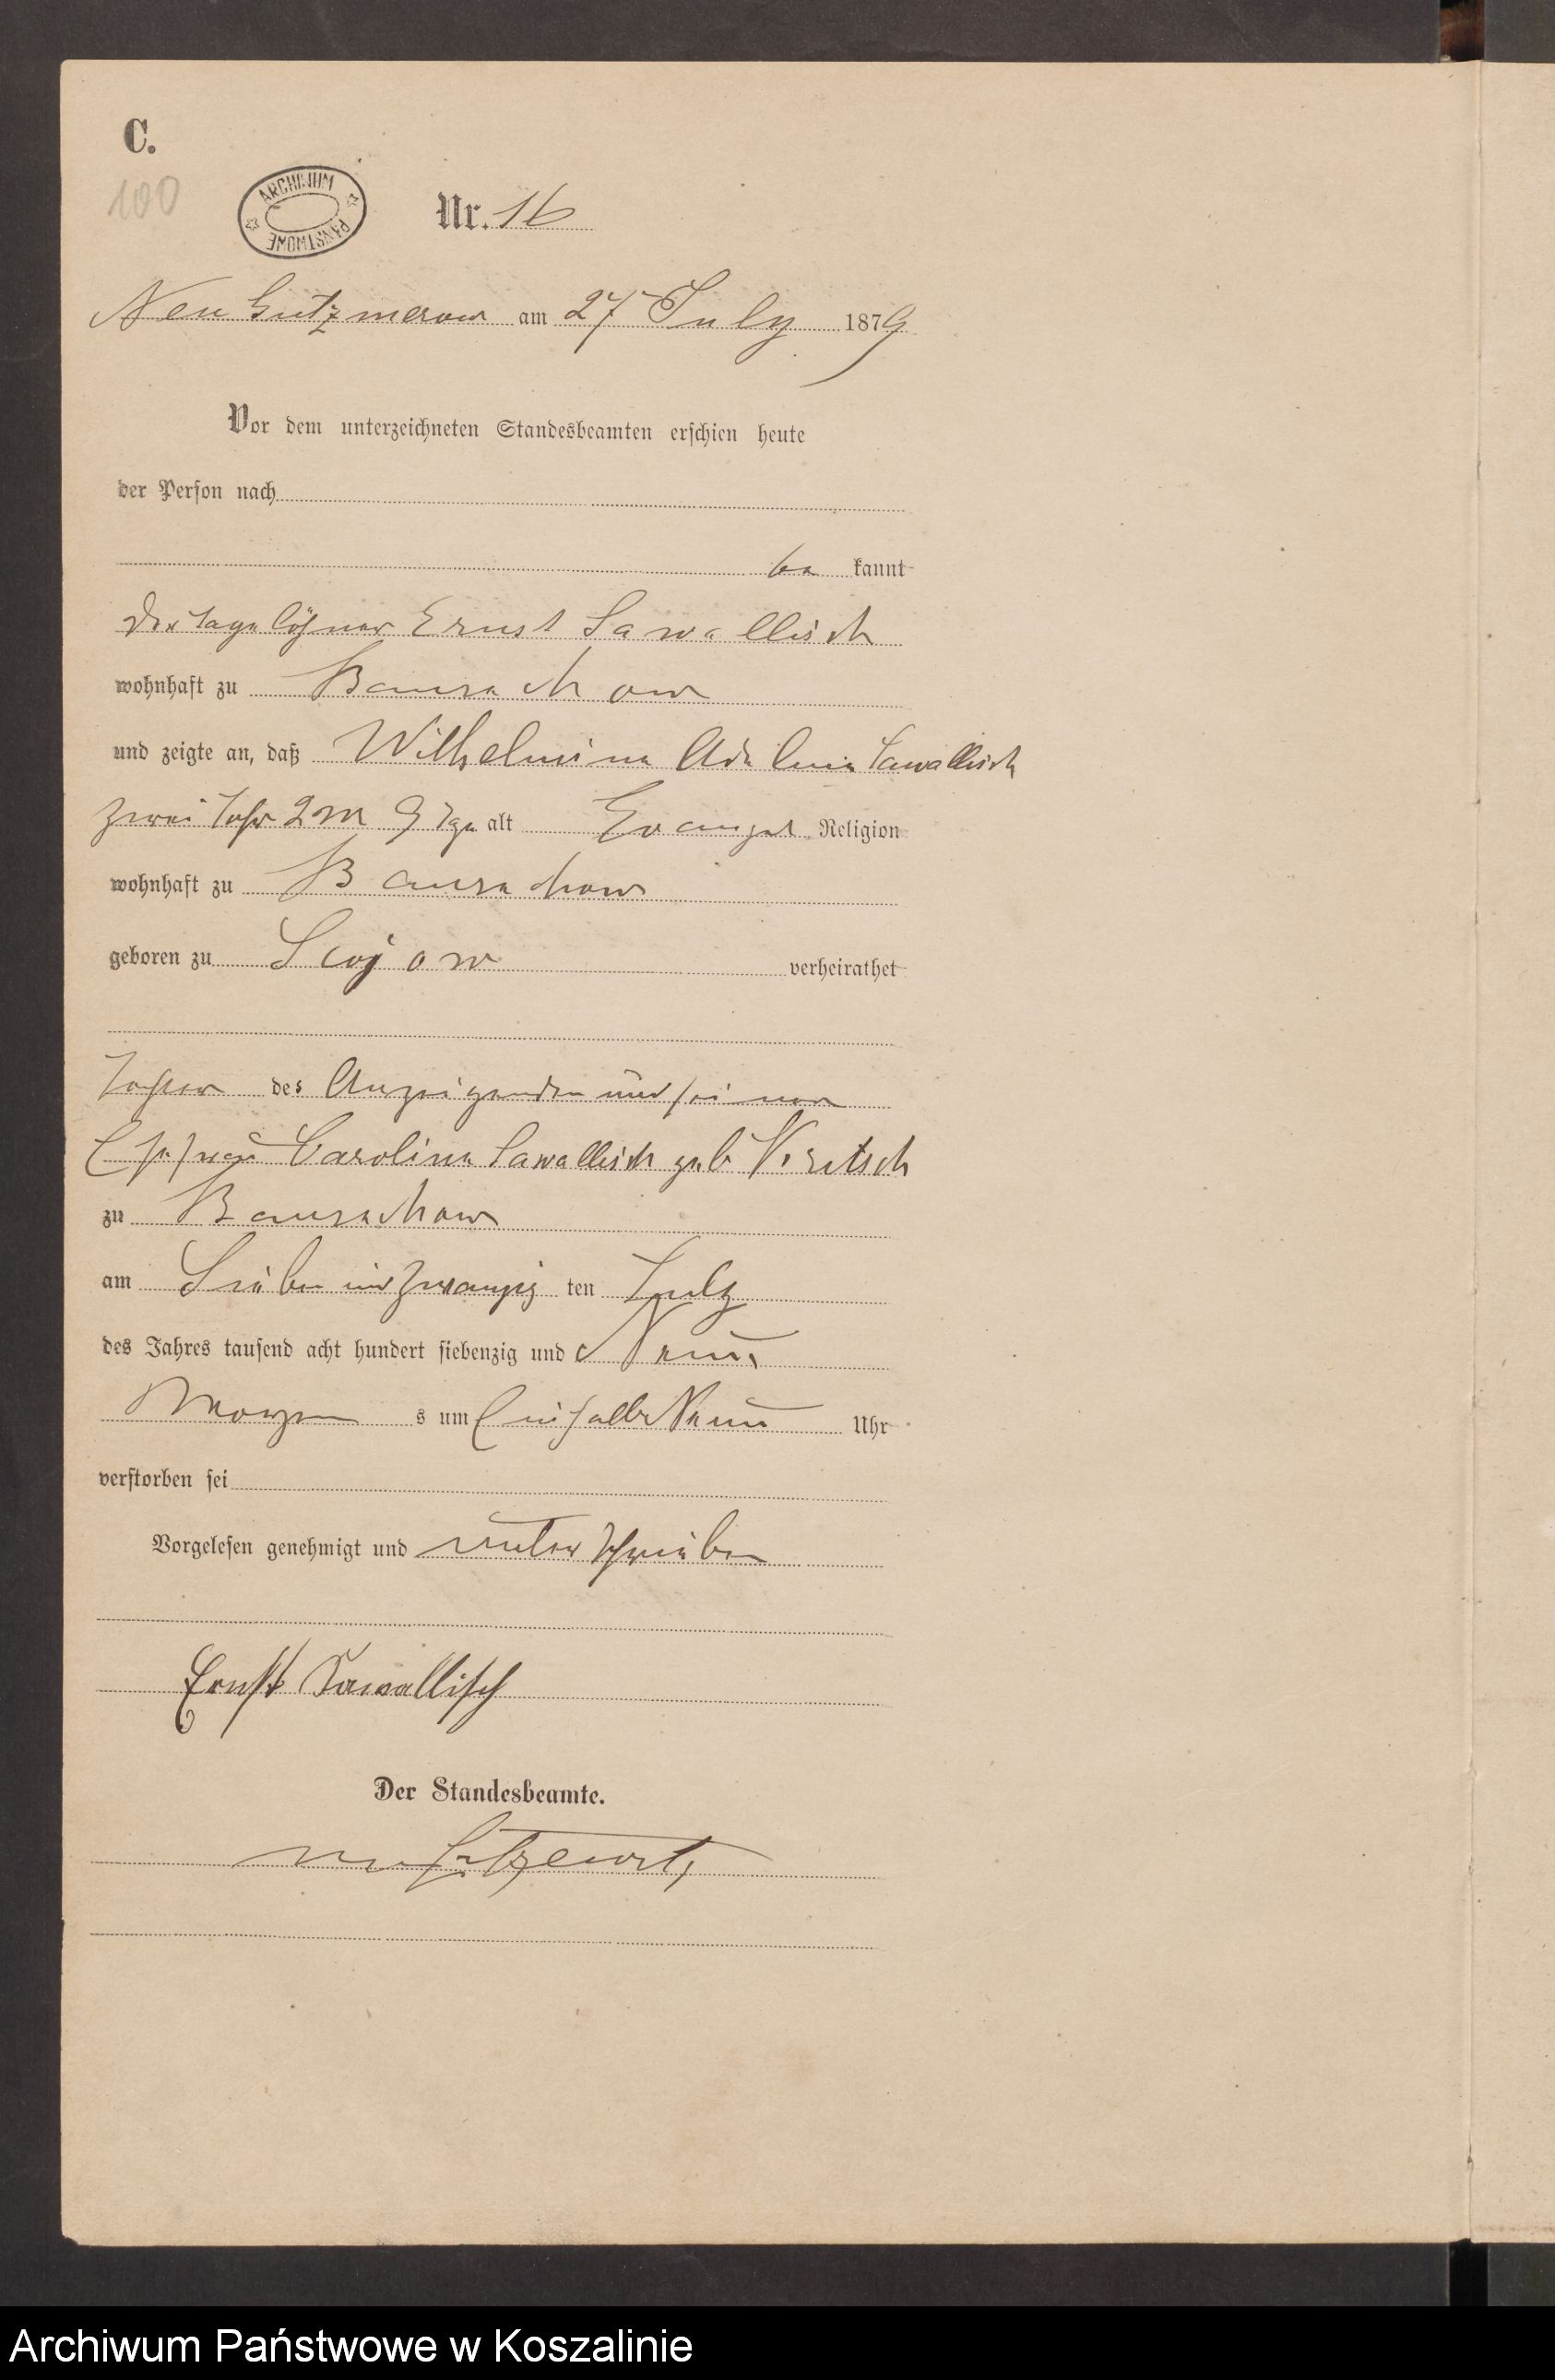 C.
100
ARCHIWUM PAŃSTWOWE
Nr. 16
Neu Gutzmerow am 27 July 1879
Vor dem unterzeichneten Standesbeamten erschien heute
der Person nach
be kannt
der Tagelöhner Ernst Sawallisch
wohnhaft zu
und zeigte an, daß Wilhelmine Sawallisch
zwei Jahr 2 M 9 Tge alt Evangel Religion
wohnhaft zu
geboren zu verheirathet
Tochter des Anzeigenden und seiner
Ehefrau Caroline Sawallisch geb
zu
am Sieben und zwanzig ten July
des Jahres tausend acht hundert siebenzig und Neun
Morgen s um Neun Uhr
verstorben sei
Vorgelesen genehmigt und unterschrieben
Ernst Sawallisch
Der Standesbeamte.
Archiwum Państwowe w Koszalinie